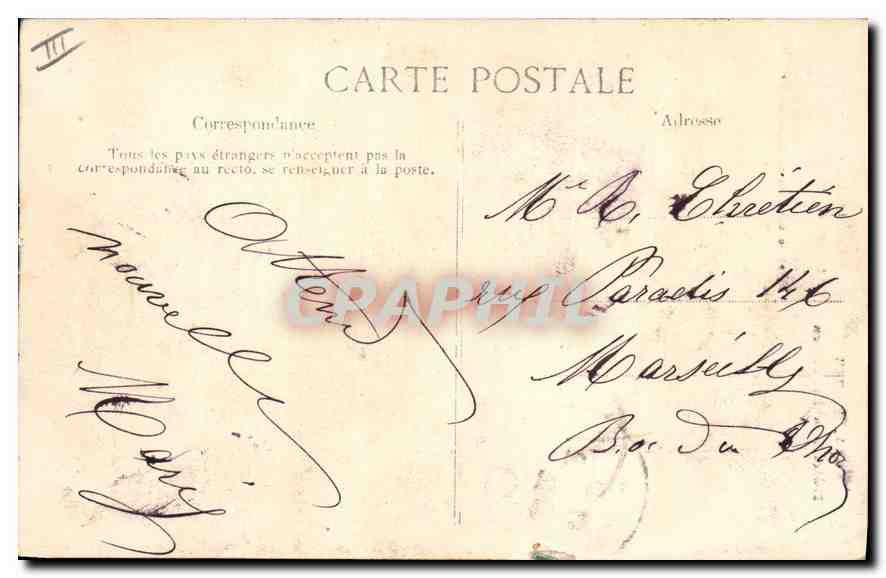 III
CARTE POSTALE
Correspondance
Tous les pays étrangers n'acceptent pas la
correspondance au recto, se renseigner à la poste.
Attend
nouvelles
Marif
Adresse
Mr A. Chrétien
rue Paradis 146
Marseille
B. du Rho
CPAPHIL